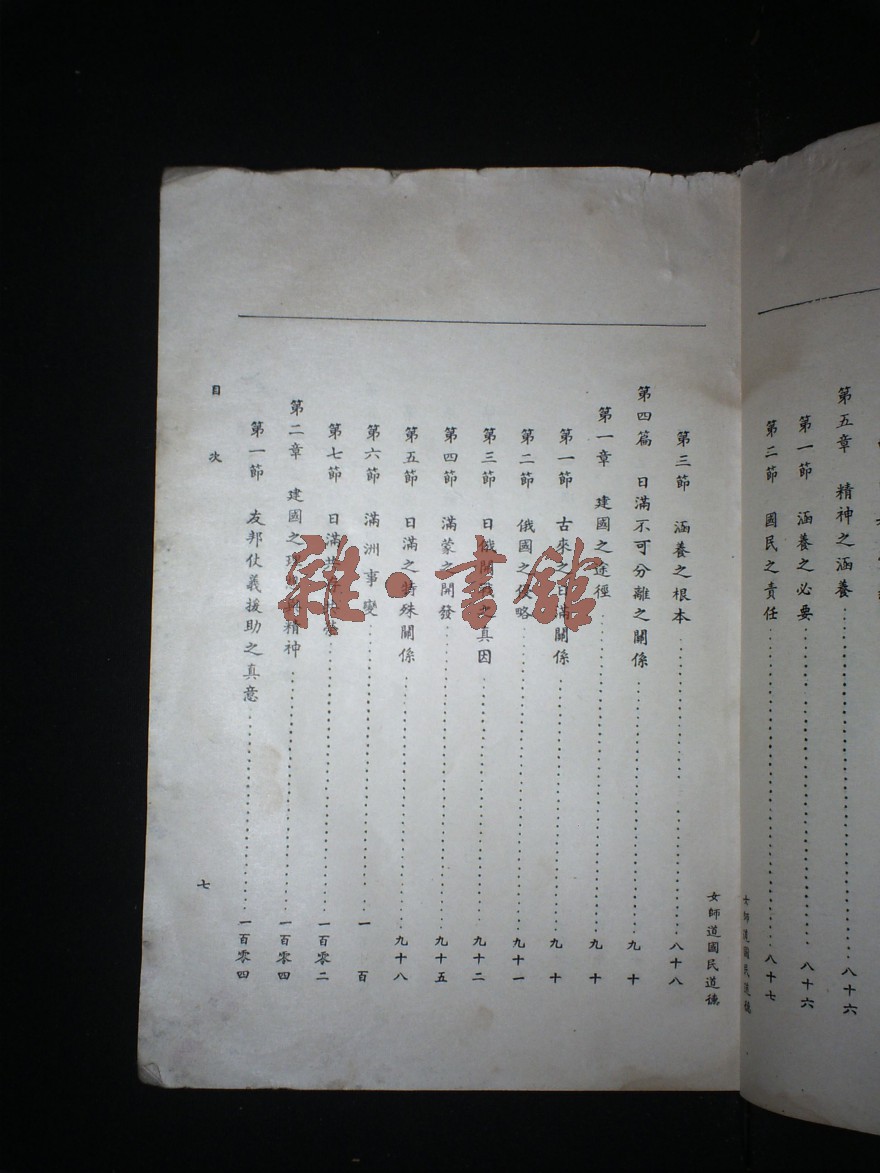 第五章 精神之涵養……八十六
第一節 涵養之必要……八十六
第二節 國民之責任……八十七
女師道國民道德
女師道國民道德
第三節 涵養之根本……八十八
第四篇 日滿不可分離之關係……九十
第一章 建國之途徑……九十
第一節 古來之日滿關係……九十
第二節 俄國之侵略……九十一
第三節 日俄開戰之真因……九十二
第四節 滿蒙之開發……九十五
第五節 日滿之特殊關係……九十八
第六節 滿洲事變……一百
第七節 日滿共……一百零二
第二章 建國之理想與精神……一百零四
第一節 友邦仗義援助之真意……一百零四
目次
七
雜·書館